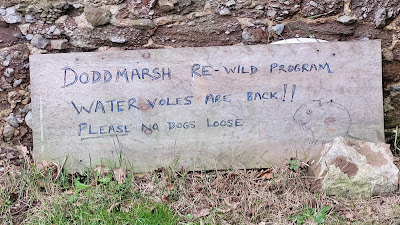 DODDMARSH RE-WILD PROGRAM
WATER VOLES ARE BACK!!
PLEASE NO DOGS LOOSE